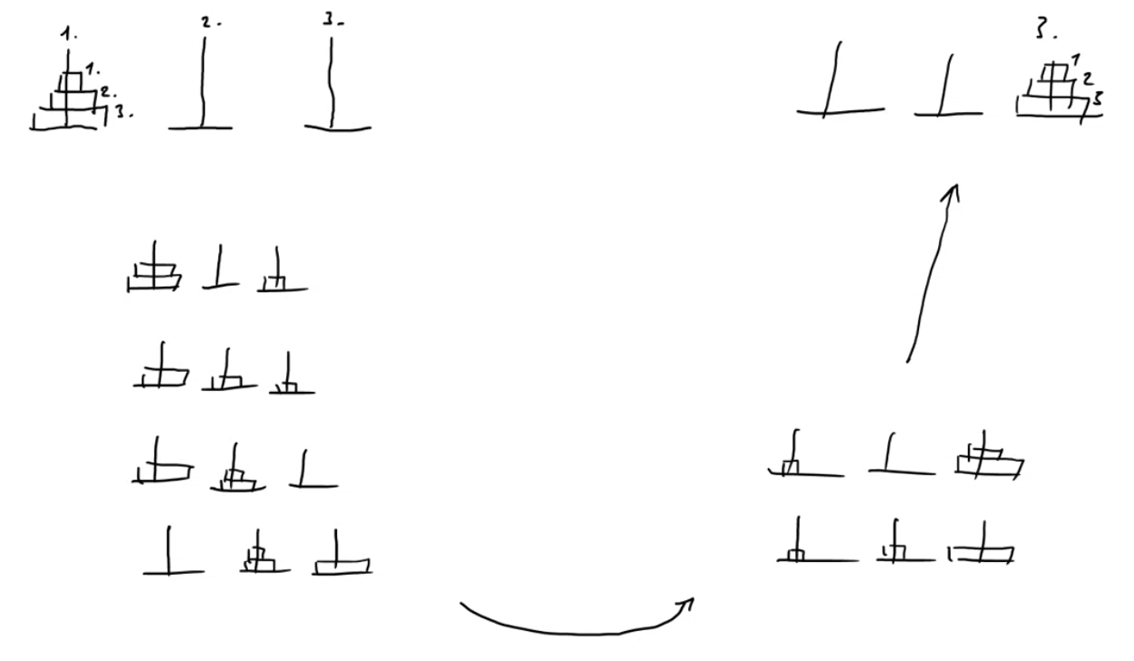 1. 2. 3.
1.
2.
3.
3.
1
2
3